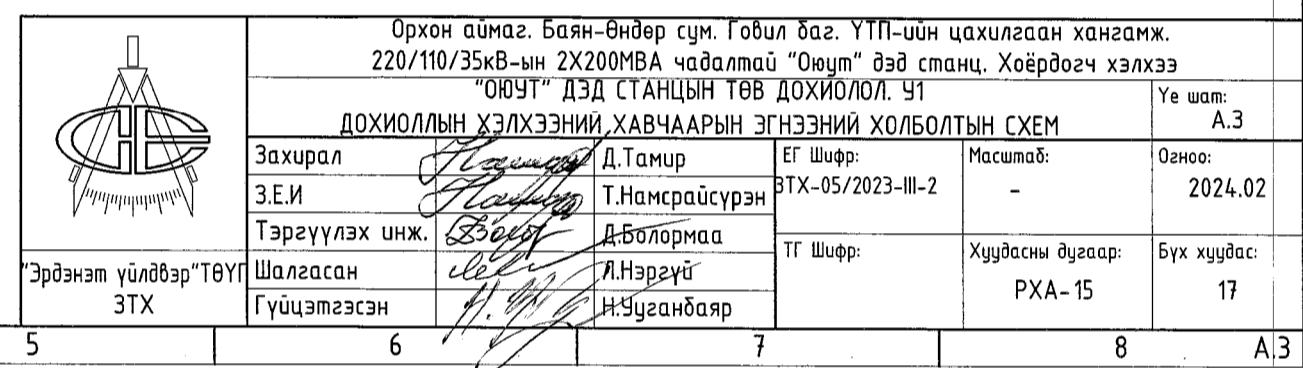 Орхон аймаг. Баян-Өндөр сум. Говил баг. ҮТП-ийн цахилгаан хангамж.
220/110/35кВ-ын 2Х200МВА чадалтай "Оюут" дэд станц. Хоёрдогч хэлхээ
"ОЮУТ" ДЭД СТАНЦЫН ТӨВ ДОХИОЛОЛ. У1
ДОХИОЛЛЫН ХЭЛХЭЭНИЙ ХАВЧААРЫН ЭГНЭЭНИЙ ХОЛБОЛТЫН СХЕМ
Үе шат:
А.З
Захирал Д.Тамир
З.Е.И Т.Намсрайсүрэн
Тэргүүлэх инж. Д.Болормаа
Шалгасан Л.Нэргүй
Гүйцэтгэсэн Н.Ууганбаяр
ЕГ Шифр:
ЗТХ-05/2023-III-2
Масштаб:
-
Огноо:
2024.02
ТГ Шифр:
Хуудасны дугаар:
РХА-15
Бүх хуудас:
17
"Эрдэнэт үйлдвэр"ТӨҮГ
ЗТХ
5 6 7 8 А.3